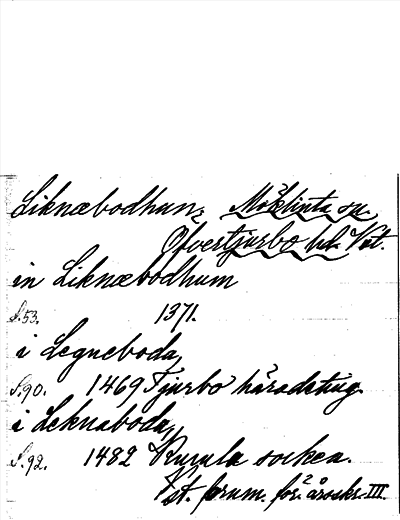 Liknæbodhum, Möklinta sn.
Ofvertjurbo hd. Vst.
in Liknæbodhum
S. 53. 1371.
i Legneboda,
S. 90. 1469 Tjurbo häradsting.
i Leknaboda,
S. 92. 1482 Kumla socken.
Vst. fornm. för:s årsskr. III.